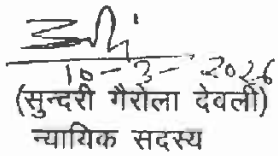 10-3-2026
(सुन्दरी गैरोला देवली)
न्यायिक सदस्य